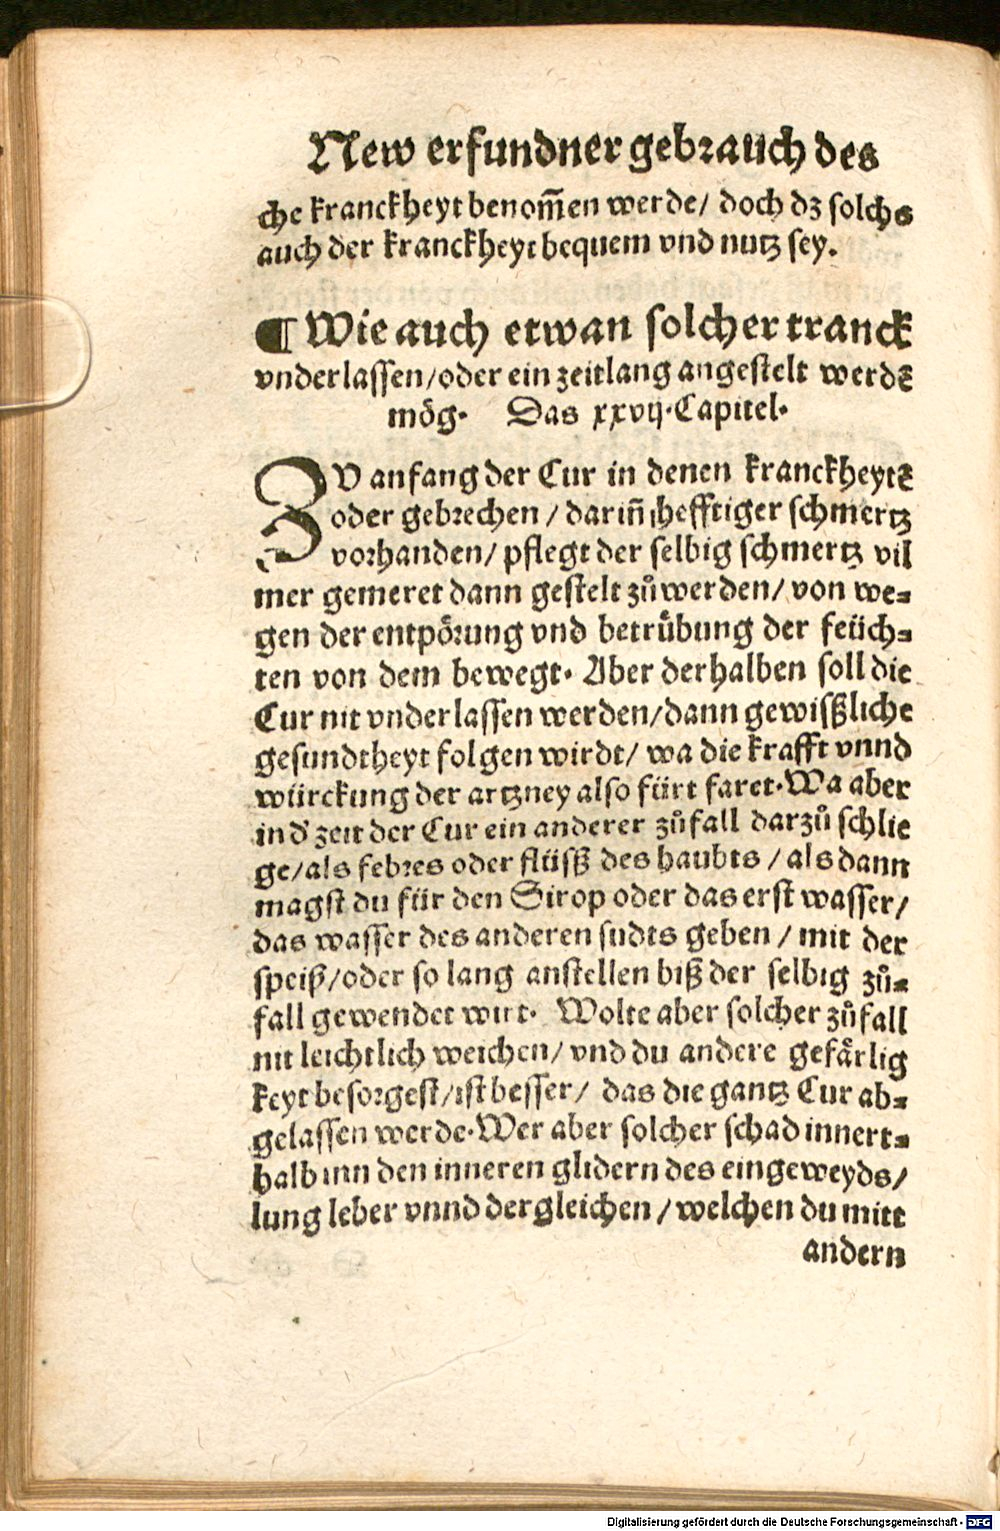 New erfundner gebrauch des
che kranckheyt benom̃en werde/ doch dz solchs
auch der kranckheyt bequem vnd nutz sey.
¶ Wie auch etwan solcher tranck
vnderlassen/oder ein zeitlang angestelt werdē
mög. Das xxvij. Capitel.
ZV anfang der Cur in denen kranckheytē
oder gebrechen / dariñ hefftiger schmertz
vorhanden/ pflegt der selbig schmertz vil
mer gemeret dann gestelt zůwerden/ von we⸗
gen der entpoͤrung vnd betruͤbung der feüch⸗
ten von dem bewegt. Aber derhalben soll die
Cur nit vnderlassen werden/dann gewißliche
gesundtheyt folgen wirdt/ wa die krafft vnnd
würckung der artzney also fürt faret. Wa aber
in d' zeit der Cur ein anderer zůfall darzů schlie
ge/als febres oder flüsß des haubts / als dann
magst du für den Sirop oder das erst wasser/
das wasser des anderen sudts geben / mit der
speiß/oder so lang anstellen biß der selbig zů⸗
fall gewendet wirt. Wolte aber solcher zůfall
nit leichtlich weichen/ vnd du andere gefaͤrlig
keyt besorgest/ist besser/ das die gantz Cur ab⸗
gelassen werde. Wer aber solcher schad innert⸗
halb inn den inneren glidern des eingeweyds/
lung leber vnnd dergleichen / welchen du mitt
andern
Digitalisierung gefördert durch die Deutsche Forschungsgemeinschaft - DFG